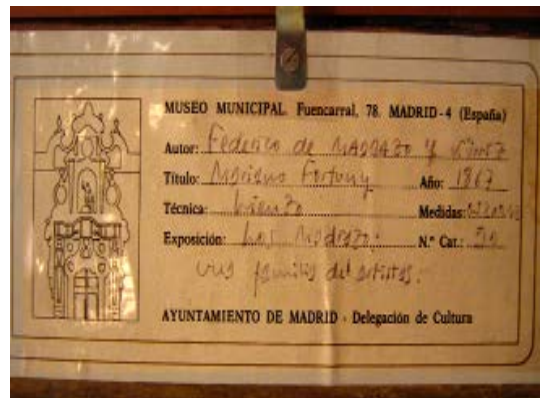 MUSEO MUNICIPAL. Fuencarral, 78. MADRID-4 (España)
Autor: Federico de MADRAZO y
Título: Mariano Fortuny Año: 1867
Técnica: Lienzo Medidas:
Exposición: Los Madrazo: N.º Cat.:
una familia de artistas.
AYUNTAMIENTO DE MADRID - Delegación de Cultura